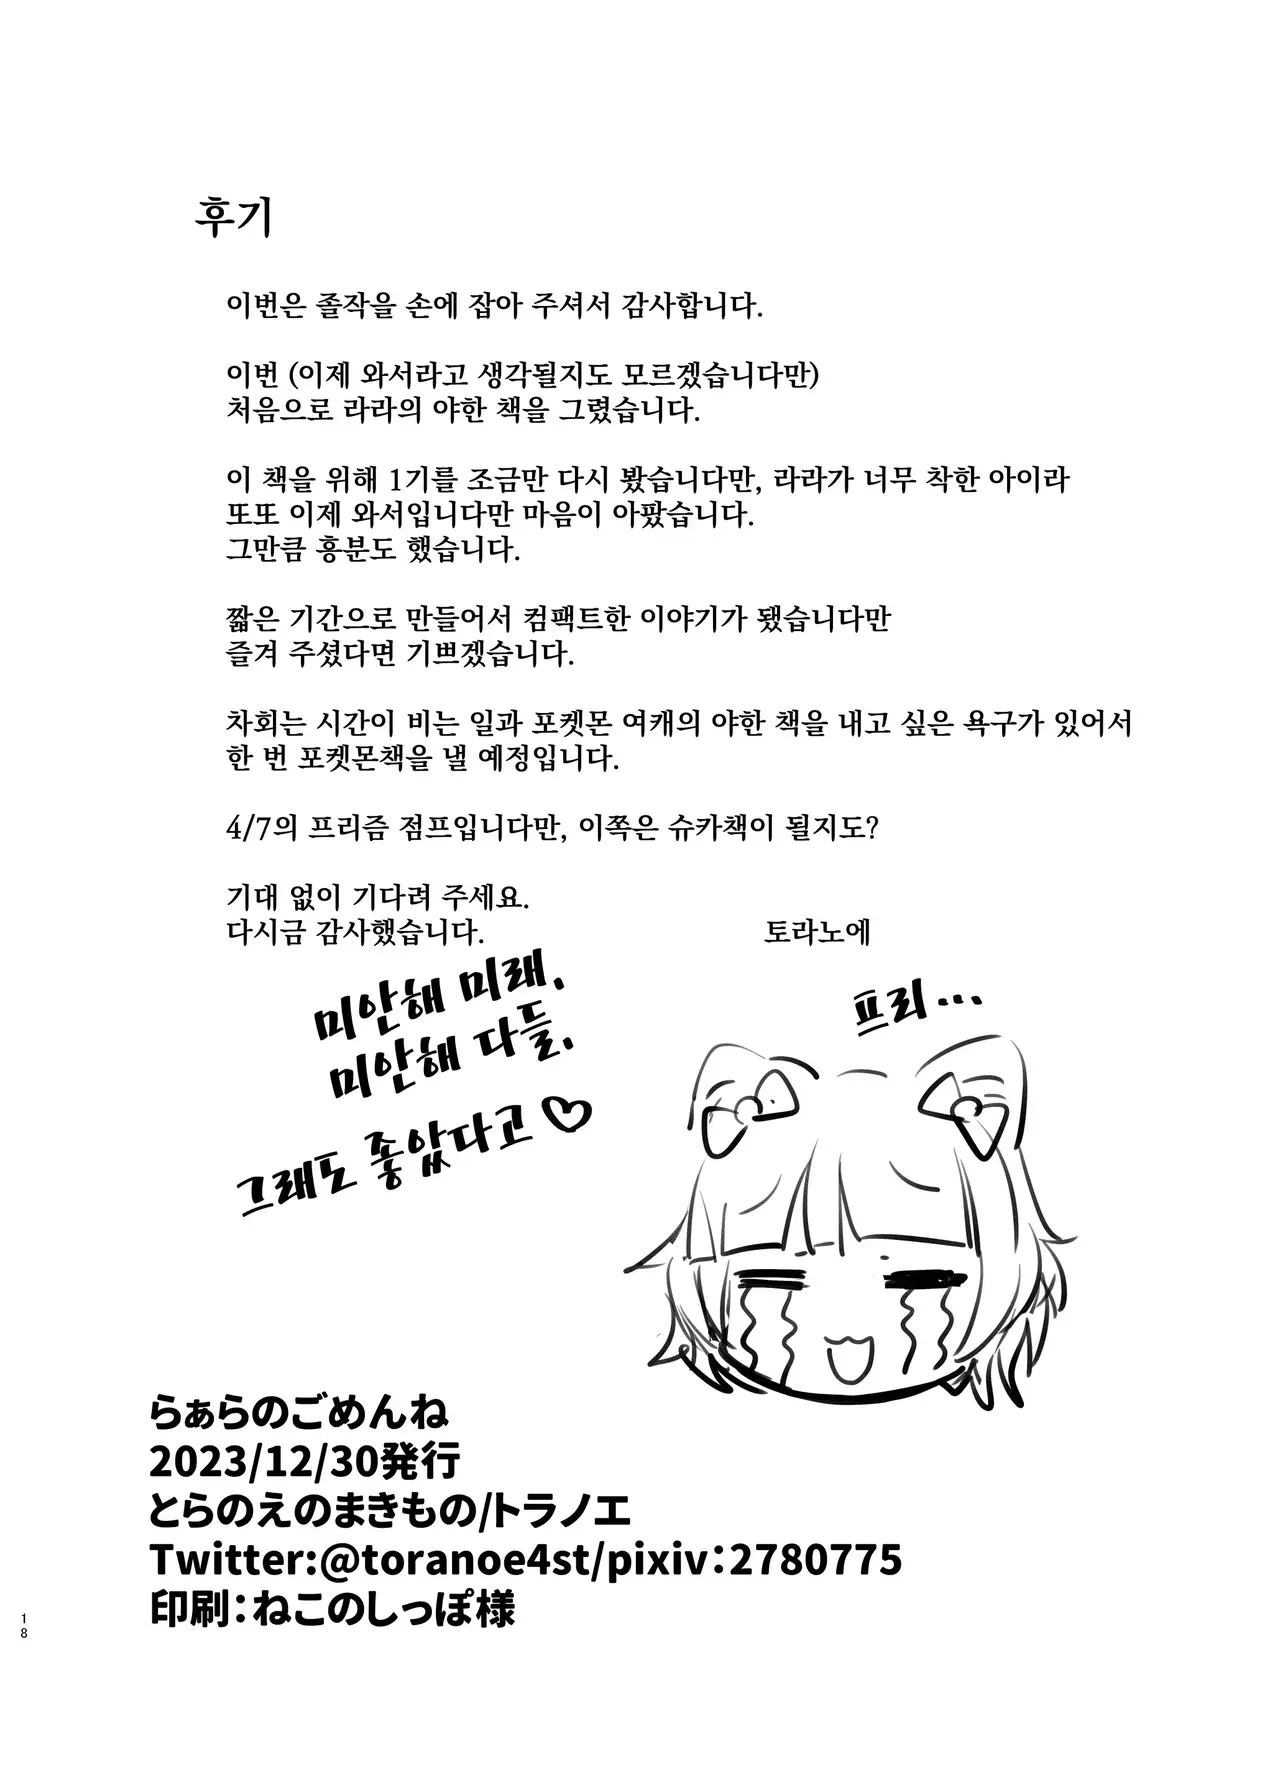 후기
이번은 졸작을 손에 잡아 주셔서 감사합니다.
이번 (이제 와서라고 생각될지도 모르겠습니다만)
처음으로 라라의 야한 책을 그렸습니다.
이 책을 위해 1기를 조금만 다시 봤습니다만, 라라가 너무 착한 아이라
또또 이제 와서입니다만 마음이 아팠습니다.
그만큼 흥분도 했습니다.
짧은 기간으로 만들어서 컴팩트한 이야기가 됐습니다만
즐겨 주셨다면 기쁘겠습니다.
차회는 시간이 비는 일과 포켓몬 여캐의 야한 책을 내고 싶은 욕구가 있어서
한 번 포켓몬책을 낼 예정입니다.
4/7의 프리즘 점프입니다만, 이쪽은 슈카책이 될지도?
기대 없이 기다려 주세요.
다시금 감사했습니다.
토라노에
미안해 미래.
미안해 다들.
그래도 좋았다고♡
프리...
らぁらのごめんね
2023/12/30発行
とらのえのまきもの/トラノエ
Twitter:@toranoe4st/pixiv:2780775
印刷:ねこのしっぽ様
18